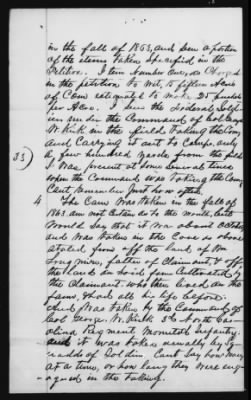 in the fall of 1863, and seen a portion
of the items taken specified in the
Petition. Item Number One, as Charged
in the petition, to wit, 15 fifteen Acres
of Corn estimated to make 25 bushels
per Acre. I seen the Federal Soldiers
under the Command of Col Geo
W. Kirk in the field taking the Corn
and Carrying it out to Camp, only
a few hundred yards from the field
I was present at some several times
when the Command was taking the Corn
Cant remember Just how often.
33)
4 The Corn was taken in the fall of
1863. am not certain as to the month, but
would say that it was about October
and was taken in the Corn as above
stated from off the land of Wm
Longmire, father of Claimant, & off
the land said being Cultivated by
the Claimant who then lived on the
farm, & had all his life before.
and was taken by the Command of
Col George W. Kirk 3rd North Car-
olina Regiment Mounted Infantry
and it was taken usually by Sq-
uads of Soldiers Cant say how many
at a time, or how long they were eng-
aged in the taking.